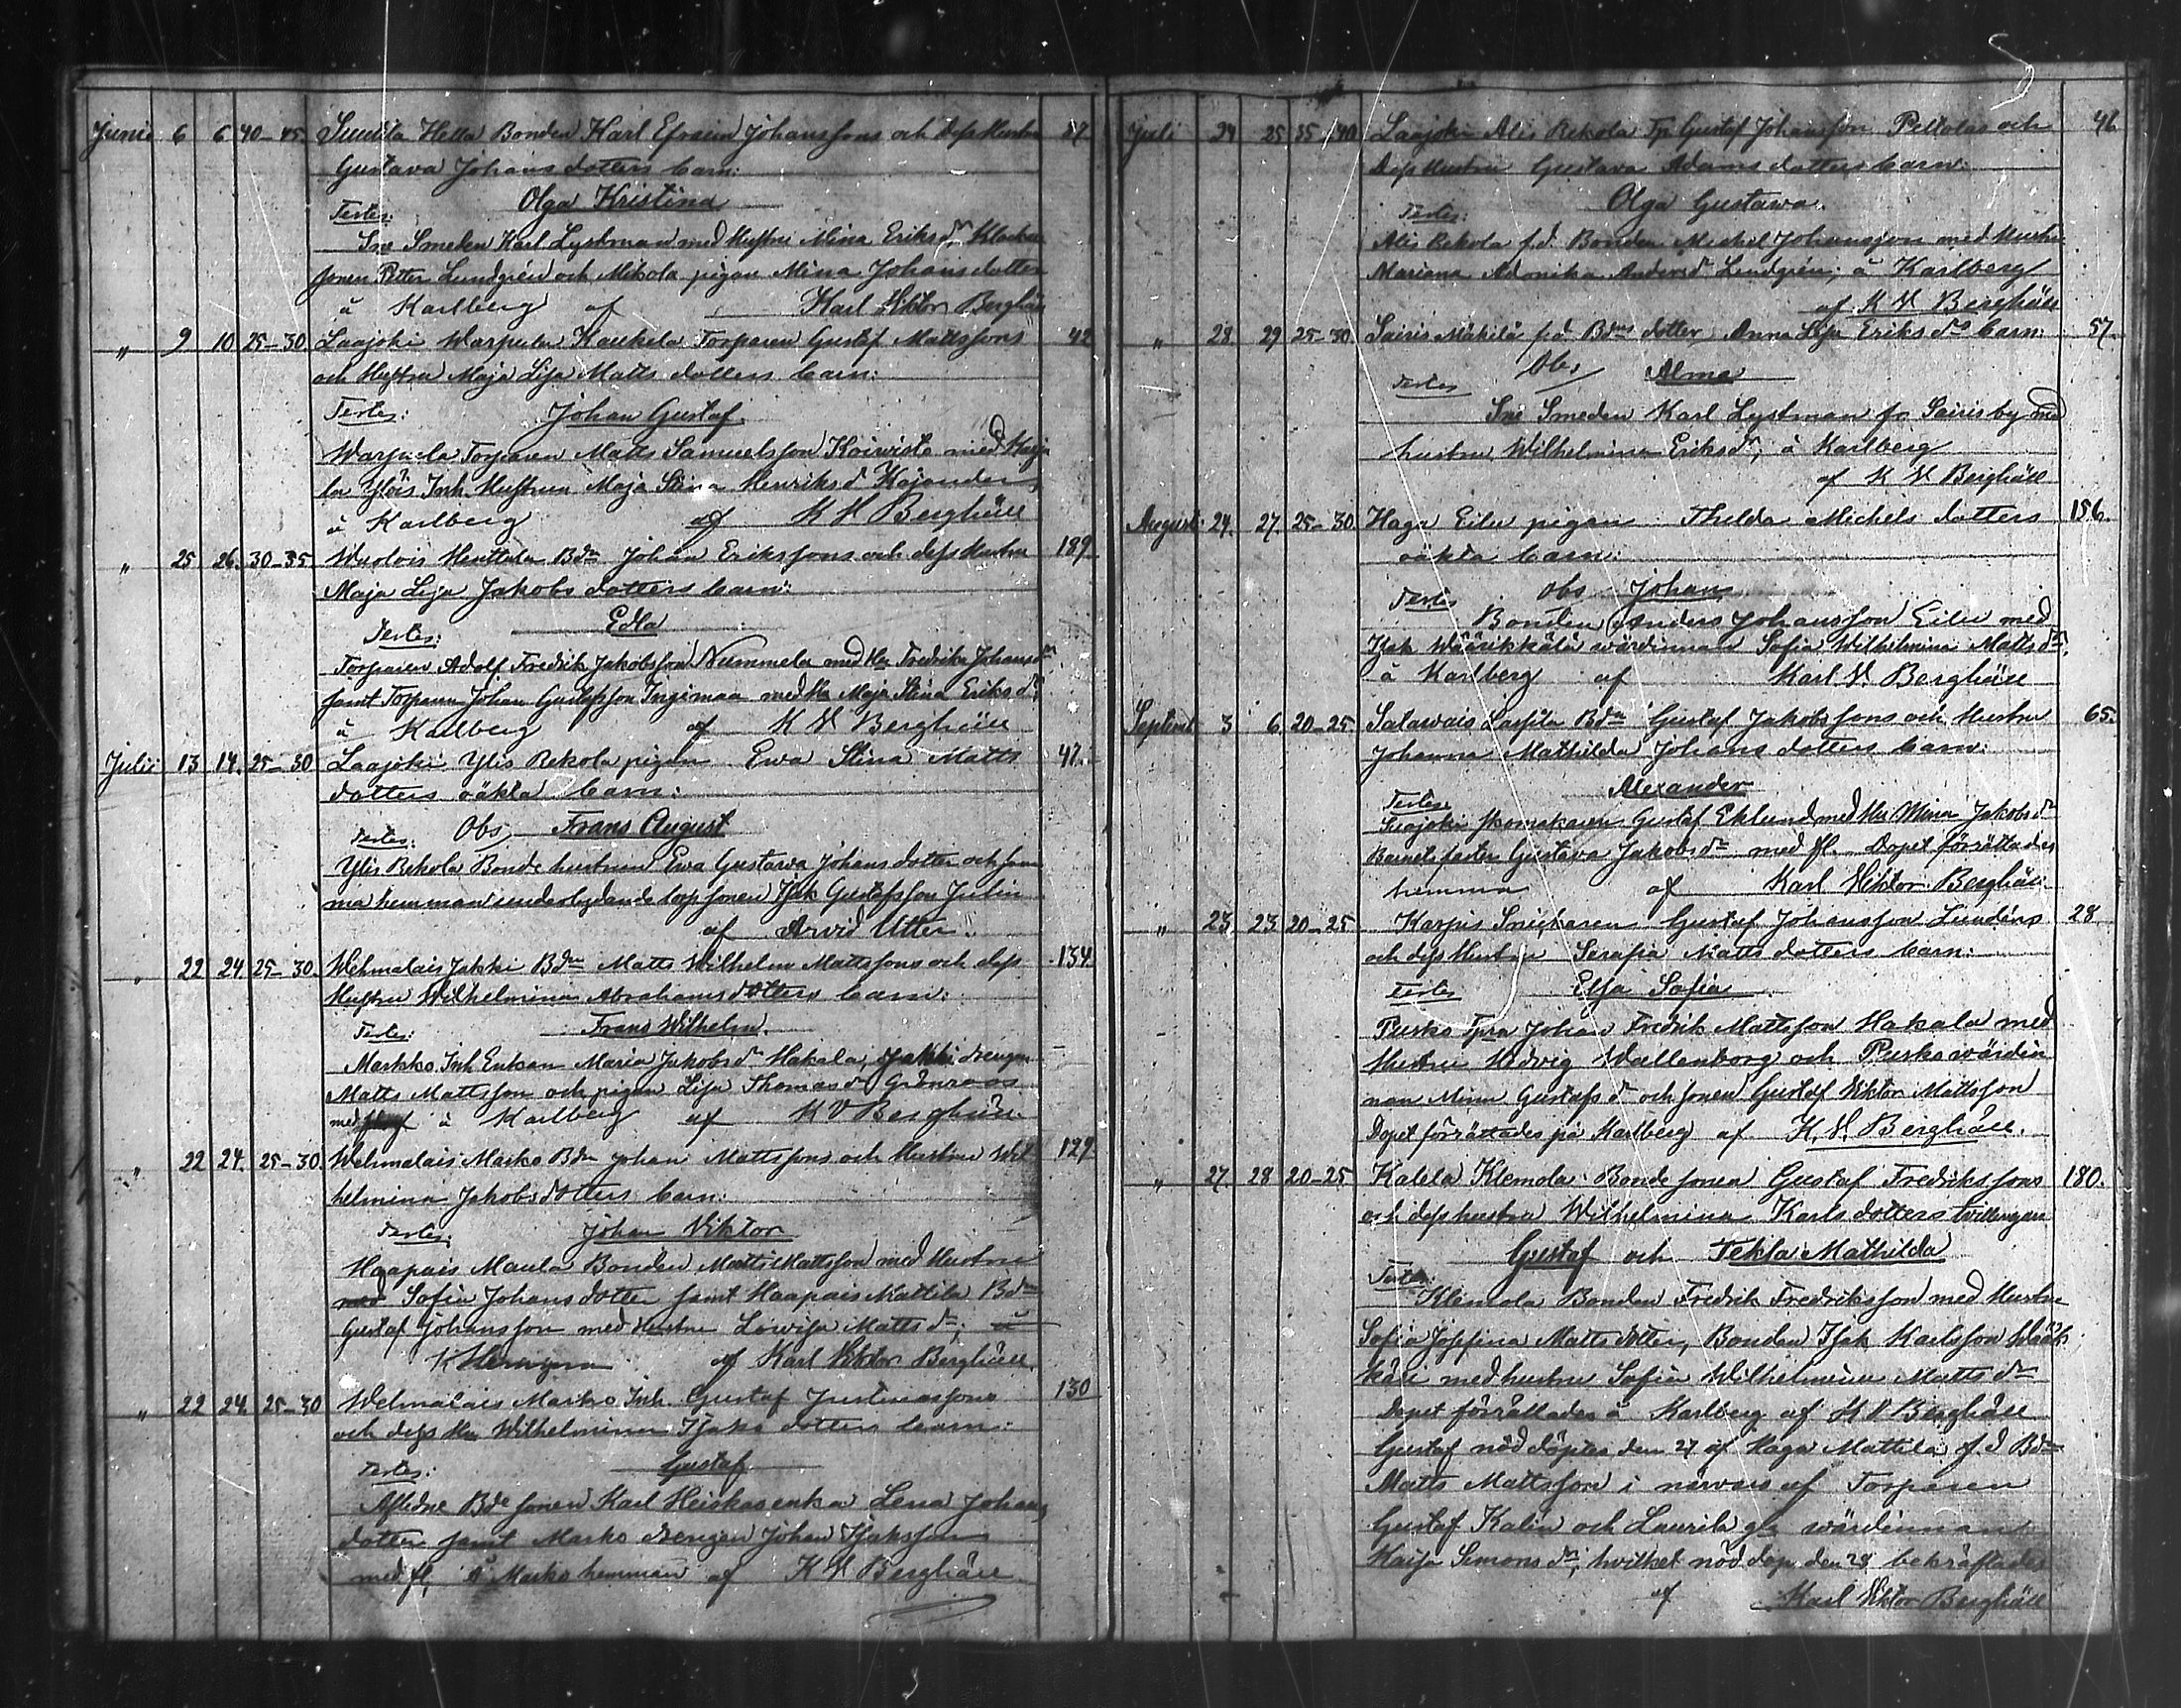 Junii 6 6 40-45. Hella Bonden Karl Efraim Johanssons och dess Hustru 27
Gustava Johansdotters barn:
Olga Kristina
Testes:
Smeden Karl Lystman med Hustru Mina Eriksdr,
sonen Petter Lundgrén och Mikola pigan Mina Johansdotter
å Karlberg af Karl Viktor Berghäll
" 9 10 25-30. Laajoki Warpula Kaukola Torparen Gustaf Mattssons 42
och Hustru Maja Lisa Matts dotters barn:
Testes: Johan Gustaf.
Warpula Torparen Matts Samuelsson Koivisto med
Inh. Hustrun Maja Stina Henriksdr Kajander,
å Karlberg af K V Berghäll
" 25 26. 30-35 Huttala Bdn Johan Erikssons och dess Hustru 189
Maja Lisa Jakobs dotters barn:
Testes: Edla
Torparen Adolf Fredrik Jakobsson Nummela med Hu Fredrika Johansdr
samt Torparen Johan Gustafsson Ingimaa med Hu Maja Stina Eriksdr
å Karlberg af K V Berghäll
Julii 13 14. 25-30 Laajoki Ylis Rekola pigan Ewa Stina Matts 47.
dotters oäkta barn:
Testes. Obs, Frans August
Ylis Rekola Bonde hustrun Ewa Gustava Johansdotter och sam
ma hemman underlydande torp sonen Isak Gustafsson Julin
af Arvid Utter.
" 22 24 25-30. Wehmalais Jakki Bdn Matts Wilhelm Mattssons och dess 134
Hustru Wilhelmina Abrahamsdotters barn:
Testes: Frans Wilhelm.
Markko Inh Enkan Maria Jakobsdr Hakala, Jakki drengen
Matts Mattsson och pigan Lisa Thomasdr Grönroos
med å Karlberg af K V Berghäll
" 22 24. 25-30. Wehmalais Marko Bdn Johan Mattssons och Hustru Wil 129.
helmina Jakobsdotters barn:
Testes. Johan Viktor
Haapais Maula Bonden Matts Mattsson med Hustru
Sofia Johans dotter samt Haapais Mattila Bdn
Gustaf Johansson med Hustru Lowisa Mattsdr; å
af Karl Viktor Berghäll.
" 22 24. 25-30 Wehmalais Marko Inh. Gustaf Justinassons 130
och dess Hu Wilhelmina Isaks dotters barn:
Testes: Gustaf
Bde sonen Karl Heiskas enka Lena Johans
dotter samt Marko drengen Johan Isaksson
med fl, å Marko hemman af K V Berghäll.
Juli 24 25 35-40 Laajoki Alis Rekola Tp Gustaf Johansson Peltolas och 46
Dess Hustru Gustava Adams dotters barn:
Testes: Olga Gustawa.
Alis Rekola f.d. Bonden Michel Johansson med Hustru
Mariana Adonika Andersdr Lundgrén; å Karlberg
af K V Berghäll
" 28. 29 25-30 Sairis Mäkilä f.d. Bdns dotter Anna Lisa Eriksdrs barn: 57.
Testes Obs, Alma
Smeden Karl Lystman fr Sairis by med
hustru Wilhelmina Eriksdr, å Karlberg
af K V Berghäll
Augusti 24. 27. 25-30. Haga Eilu pigan Thilda Michels dotters 156.
oäkta barn:
Testes obs Johan
Bonden Anders Johansson Eilu med
Isak Wäärikkälä wärdinnan Sofia Wilhelmina Mattsdr,
å Karlberg af Karl V. Berghäll
Septemb 3 6 20-25 Satawais Bdn Gustaf Jakobssons och Hustru 65.
Johanna Mathilda Johans dotters barn:
Alexander
Testes.
skomakaren Gustaf Eklund med Hu Mina Jakobsdr
Barnets faster Gustava Jakobsdr med fl. Dopet förrättades
hemma af Karl Viktor Berghäll
" 23. 23 20-25 Karjis Snickaren Gustaf Johansson Lundéns 28
och dess Hustru Serafia Matts dotters barn:
Testes Elsa Sofia
Pusko Johan Fredrik Mattsson Hakala med
Hustru Hedvig Wallenborg och Pusko wärdin
nan Mina Gustafsdr och sonen Gustaf Viktor Mattsson
Dopet förrättades på Karlberg af K. V. Berghäll.
" 27. 28 20-25 Kalela Klemola Bonde sonen Gustaf Fredrikssons 180.
och dess hustru Wilhelmina Karlsdotters tvillingar
Gustaf och Tekla Mathilda
Testes:
Klemola Bonden Fredrik Fredriksson med Hustru
Sofia Josefina Matts dotter, Bonden Isak Karlsson
med hustru Sofia Wilhelmina Mattsdr
Dopet förrättades å Karlberg af K V Berghäll
Gustaf nöddöptes den 27 af Haga Mattila f.d Bdn
Matts Mattsson i närvaro af Torparen
Gustaf Kalin och Laurila wärdinnan
Kaisa Simonsdr, hvilket nöddop den 28 bekräftades
af Karl Viktor Berghäll